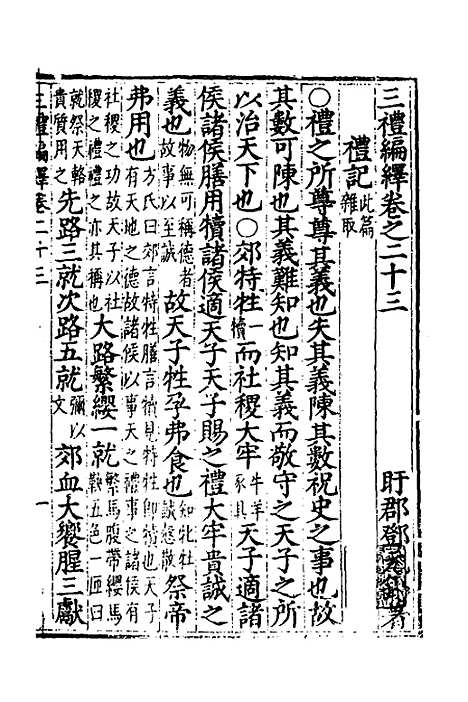 三禮編繹卷之二十三　盱郡鄧元錫著
禮記此篇雜取
○禮之所尊尊其義也失其義陳其數祝史之事也故
其數可陳也其義難知也知其義而敬守之天子之所
以治天下也○郊特牲犢一而社稷大牢牛羊豕具天子適諸
侯諸侯膳用犢諸侯適天子天子賜之禮大牢貴誠之
義也物無可稱德者故事以至誠故天子牲孕弗食也知牝牡誠慤散祭帝
弗用也方氏曰郊言特牲膳言犢見特牲即犢也天子有天地之德故諸侯以事天之禮事之諸侯有
社稷之功故天子以社稷之禮禮之亦其稱也大路繁纓一就繁馬腹帶纓馬鞅五色一匝曰
就祭天輅貴質用之先路三就次路五就彌以文郊血大饗腥三獻
三禮編繹卷二十三　一